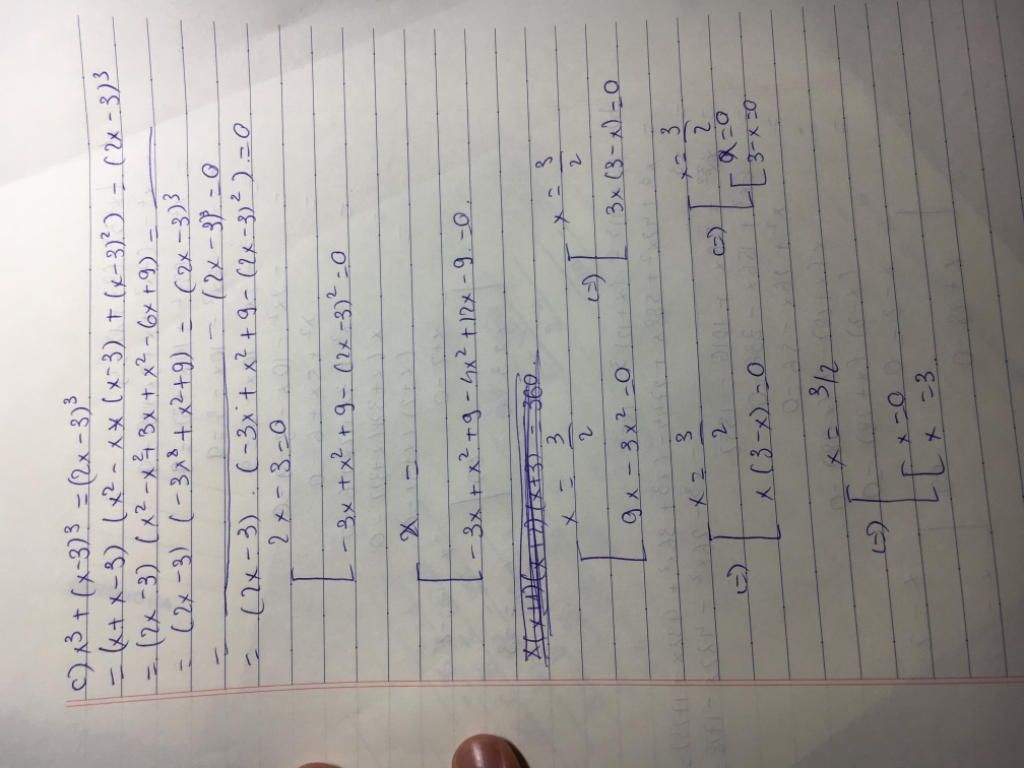 c) x³ + (x-3)³ = (2x-3)³
= (x+x-3) (x² - x x (x-3) + (x-3)²) = (2x-3)³
= (2x-3) (x² - x² + 3x + x² - 6x + 9) =
= (2x-3) (-3x + x² + 9) = (2x-3)³
= (2x-3)³ = 0
= (2x-3) . (-3x + x² + 9 - (2x-3)²) = 0
2x - 3 = 0
-3x + x² + 9 - (2x-3)² = 0
x =
-3x + x² + 9 - 4x² + 12x - 9 = 0.
x(x+1)(x+2)(x+3) = 360
x = 3/2 (=) x = 3/2
9x - 3x² = 0 3x(3-x) = 0
(=) x = 3/2 (=) x = 3/2
x(3-x) = 0 x = 0
3-x = 0
(=) x = 3/2
x = 0
x = 3